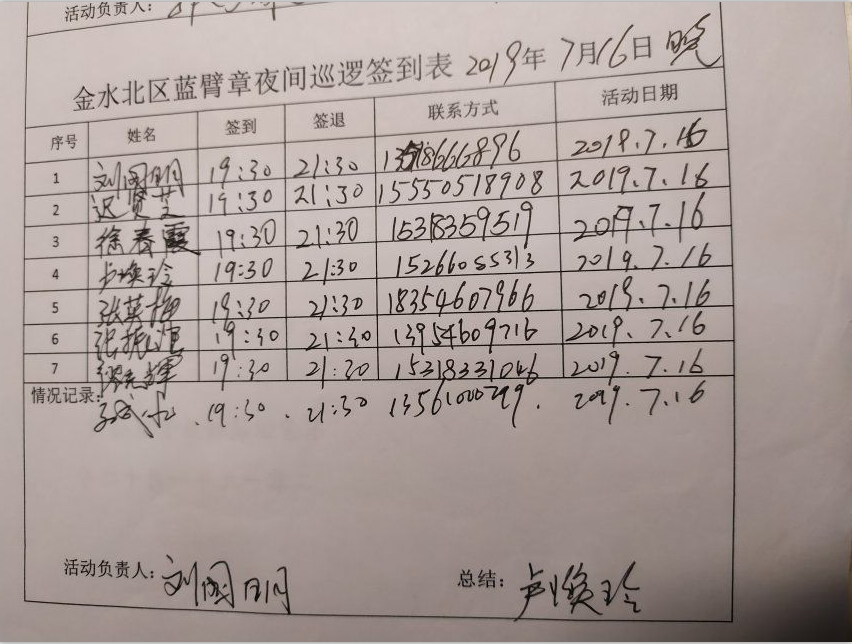 活动负责人:
金水北区蓝臂章夜间巡逻签到表 2019年7月16日 晚
序号 姓名 签到 签退 联系方式 活动日期
1 刘国明 19:30 21:30 2019.7.16
2 迟贤芝 19:30 21:30 15550518908 2019.7.16
3 徐春霞 19:30 21:30 15318359519 2019.7.16
4 卢焕玲 19:30 21:30 15266055313 2019.7.16
5 张英梅 19:30 21:30 18354607966 2019.7.16
6 张振 19:30 21:30 13954609716 2019.7.16
7 19:30 21:30 15318331046 2019.7.16
情况记录:
19:30 . 21:30 13561000799. 2019.7.16
活动负责人: 刘国明 总结: 卢焕玲